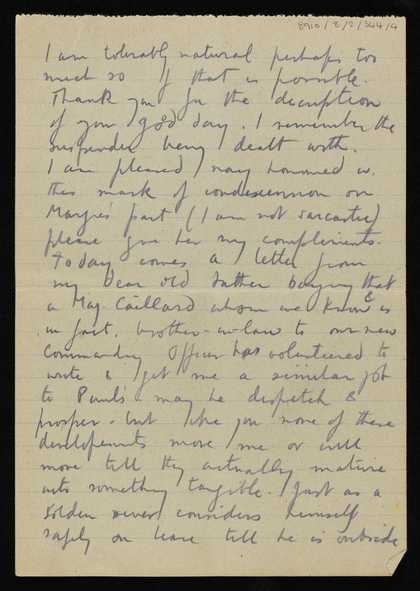 8910/2/2/344/4
I am tolerably natural perhaps too
much so if that is possible.
Thank you for the description
of your good day. I remember the
suspender being dealt with.
I am pleased nay honoured w.
this mark of condescension on
Margie's part (I am not sarcastic)
please give her my compliments.
Today comes a letter from
my dear old Father saying that
a Maj. Caillard whom we know & is
in fact, brother-in-law to our new
Commanding Officer has volunteered to
write & get me a similar job
to Paul's may he despatch &
prosper - but like you none of these
developements move me or will
move till they actually mature
into something tangible. Just as a
soldier never considers himself
safely on leave till he is outside